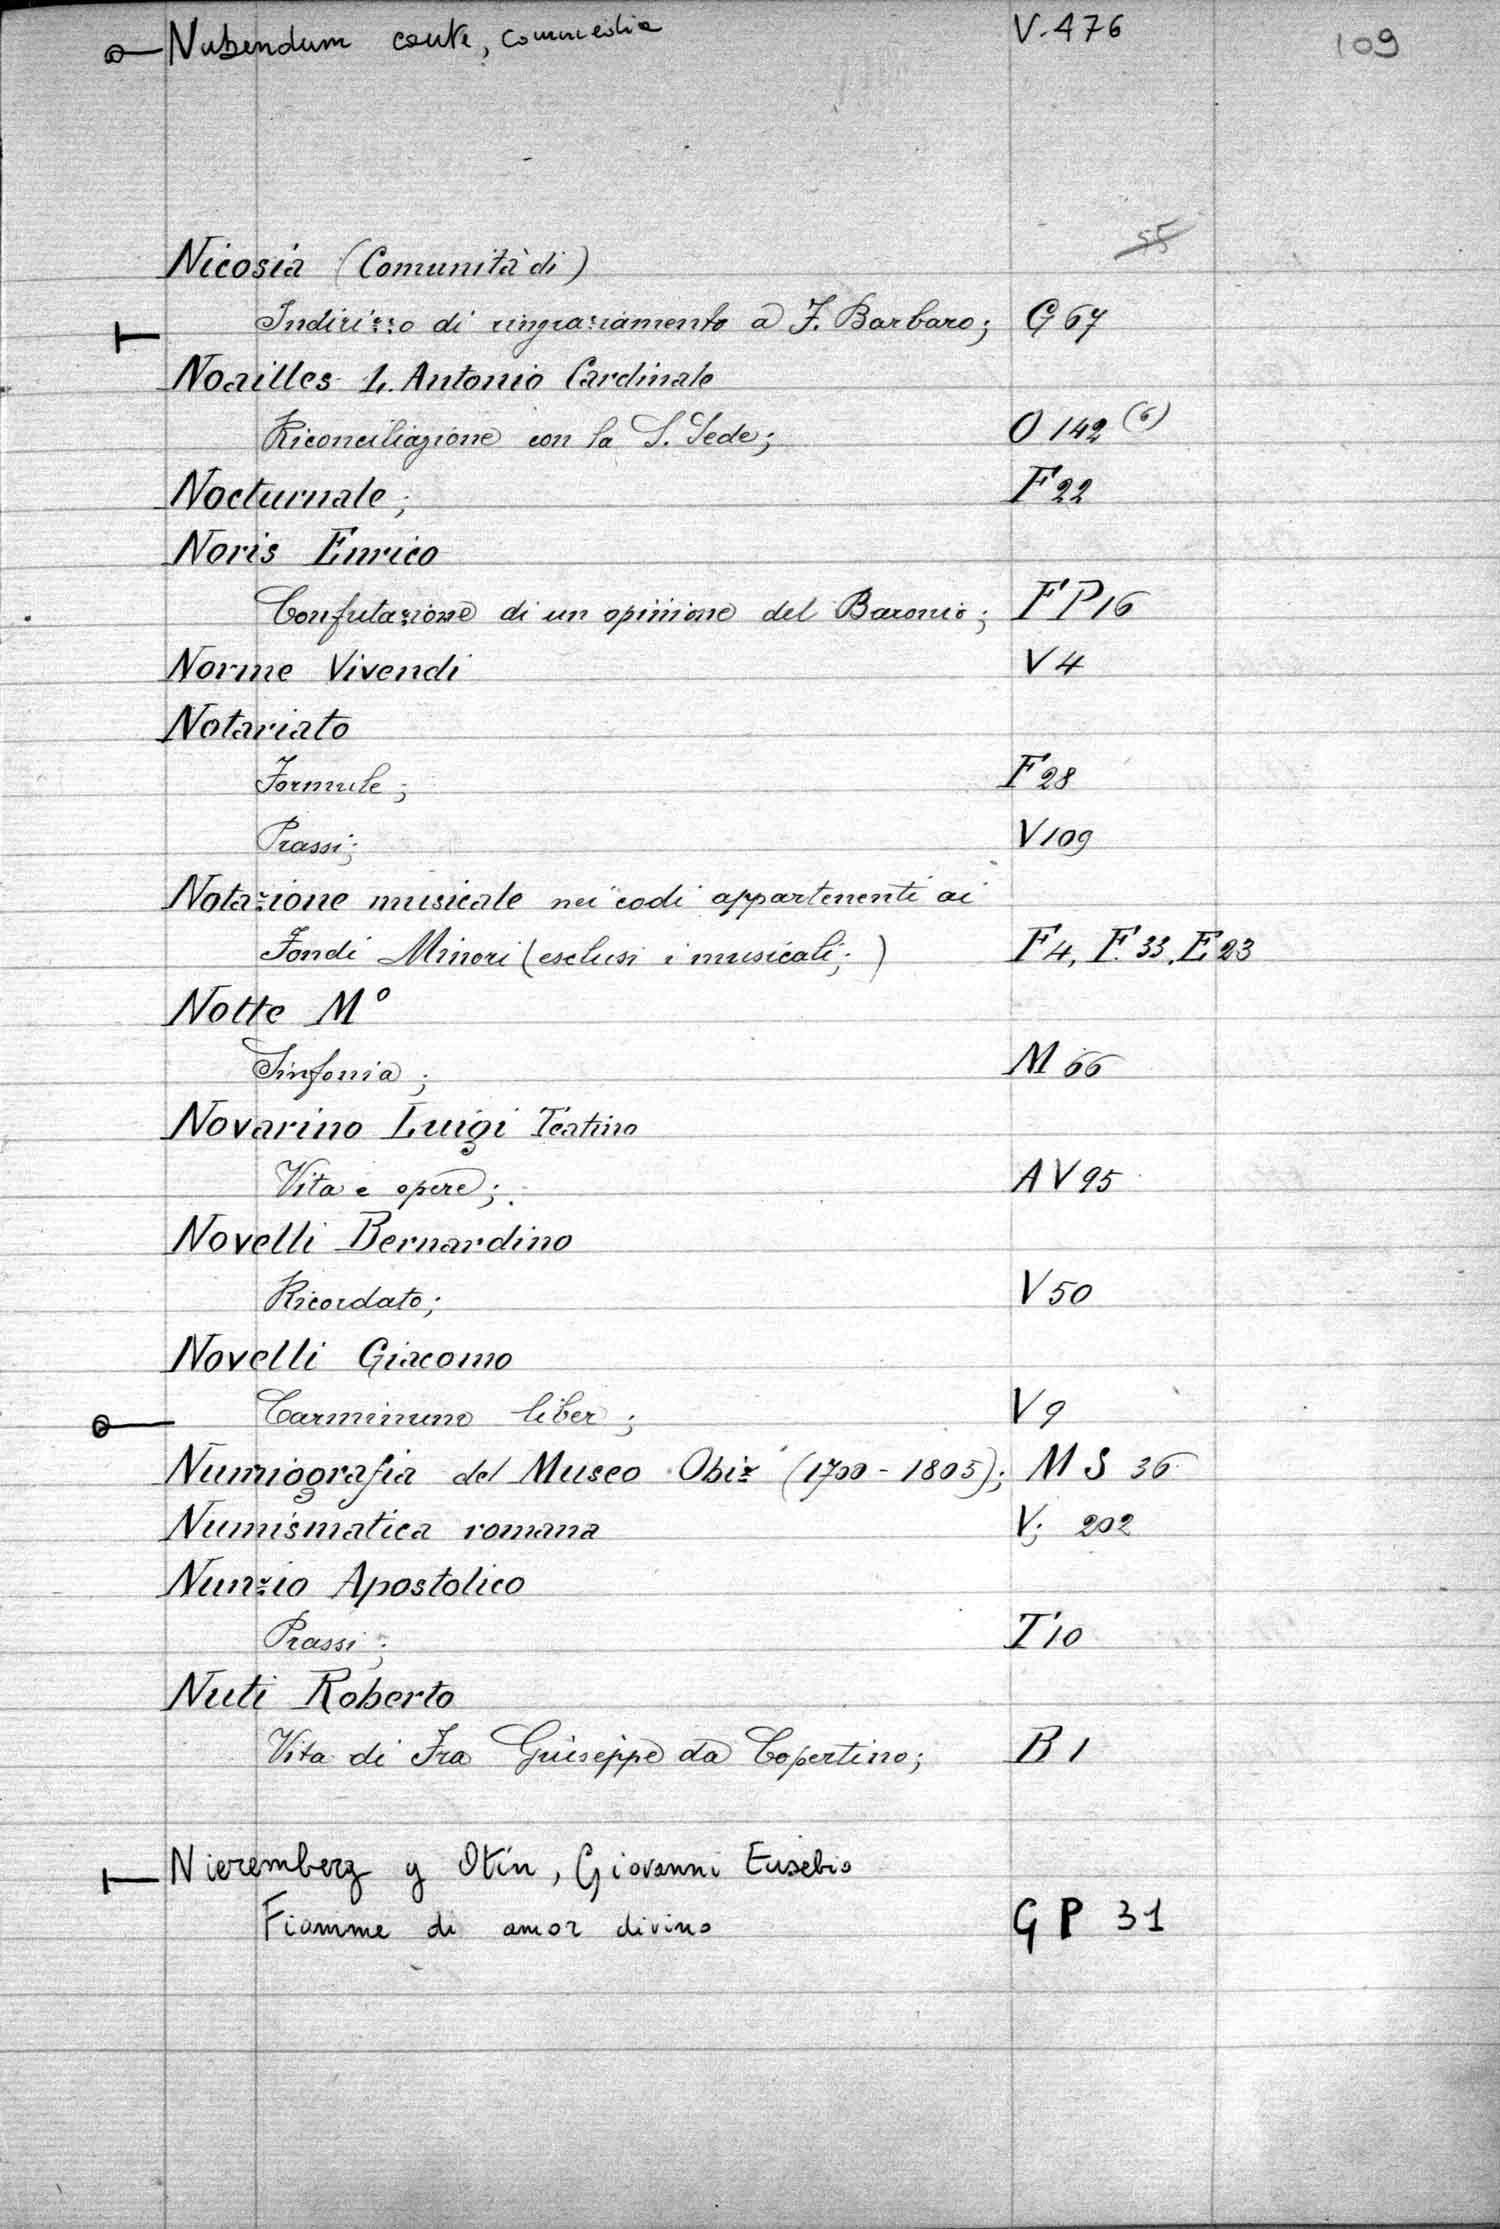 Nubendum caute, commedia V. 476 109
55
Nicosia (Comunità di)
Indirizzo di ringraziamento a F. Barbaro; G 67
Noailles L. Antonio Cardinale
Riconciliazione con la S. Sede; O 142 (6)
Nocturnale; F 22
Noris Enrico
Confutazione di un opinione del Baronio; F P 16
Norme Vivendi V 4
Notariato
Formule; F 28
Prassi; V 109
Notazione musicale nei codi appartenenti ai
Fondi Minori (esclusi i musicali;) F 4, F. 33, E 23
Notte M°
Sinfonia; M 66
Novarino Luigi Teatino
Vita e opere; A V 95
Novelli Bernardino
Ricordato; V 50
Novelli Giacomo
Carminum liber; V 9
Numiografia del Museo Obiz (1700-1805); M S 36
Numismatica romana V; 202
Nunzio Apostolico
Prassi; T 10
Nuti Roberto
Vita di Fra Giuseppe da Copertino; B 1
Nieremberg y Otín, Giovanni Eusebio
Fiamme di amor divino G P 31